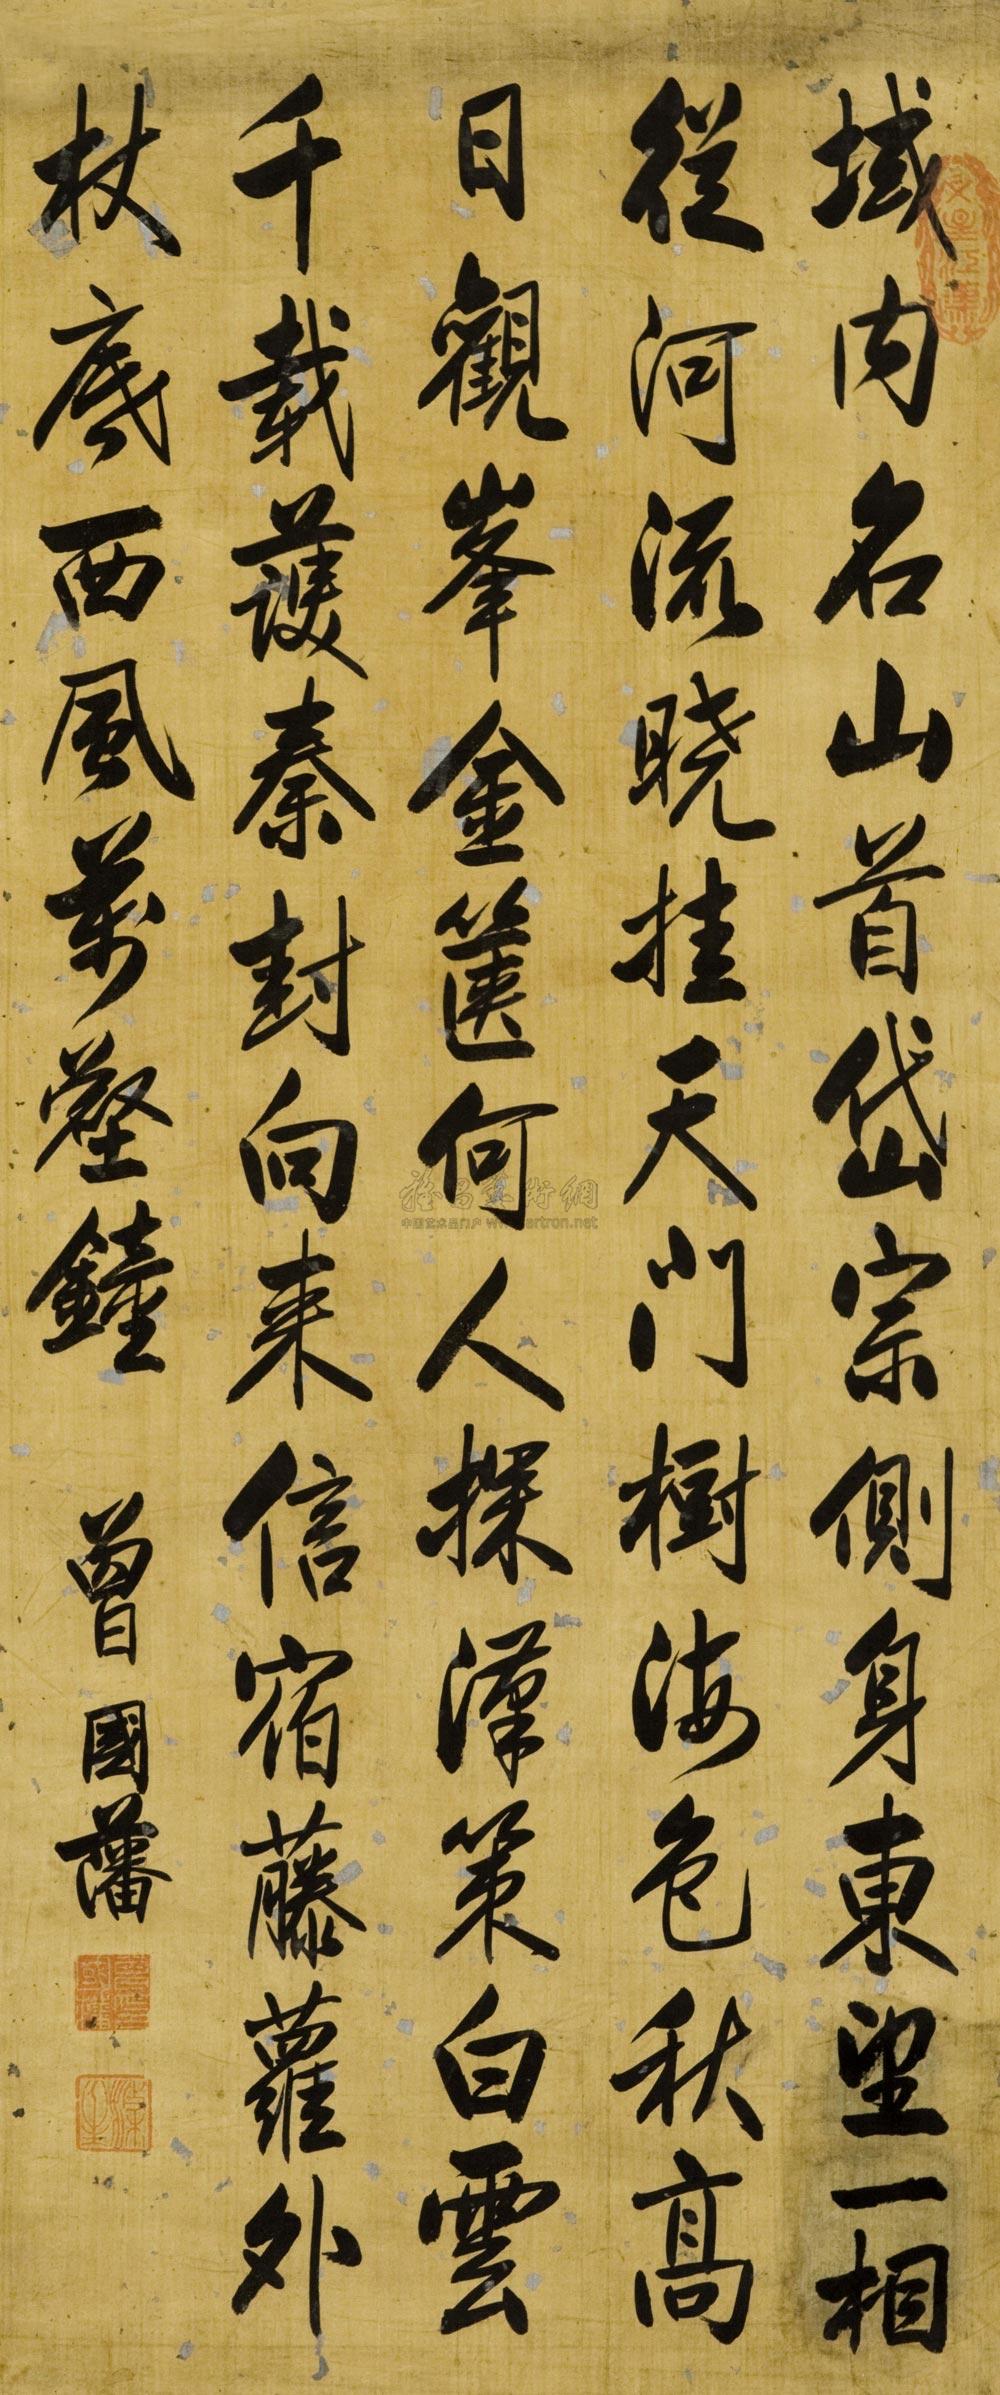 域内名山首岱宗側身東望一相
從河流曉挂天門樹海色秋高
日觀峯金篋何人探漢策白雲
千載護秦封向来信宿藤蘿外
杖底西風萬壑鐘
曾國藩
中国艺术品门户 www.artron.net